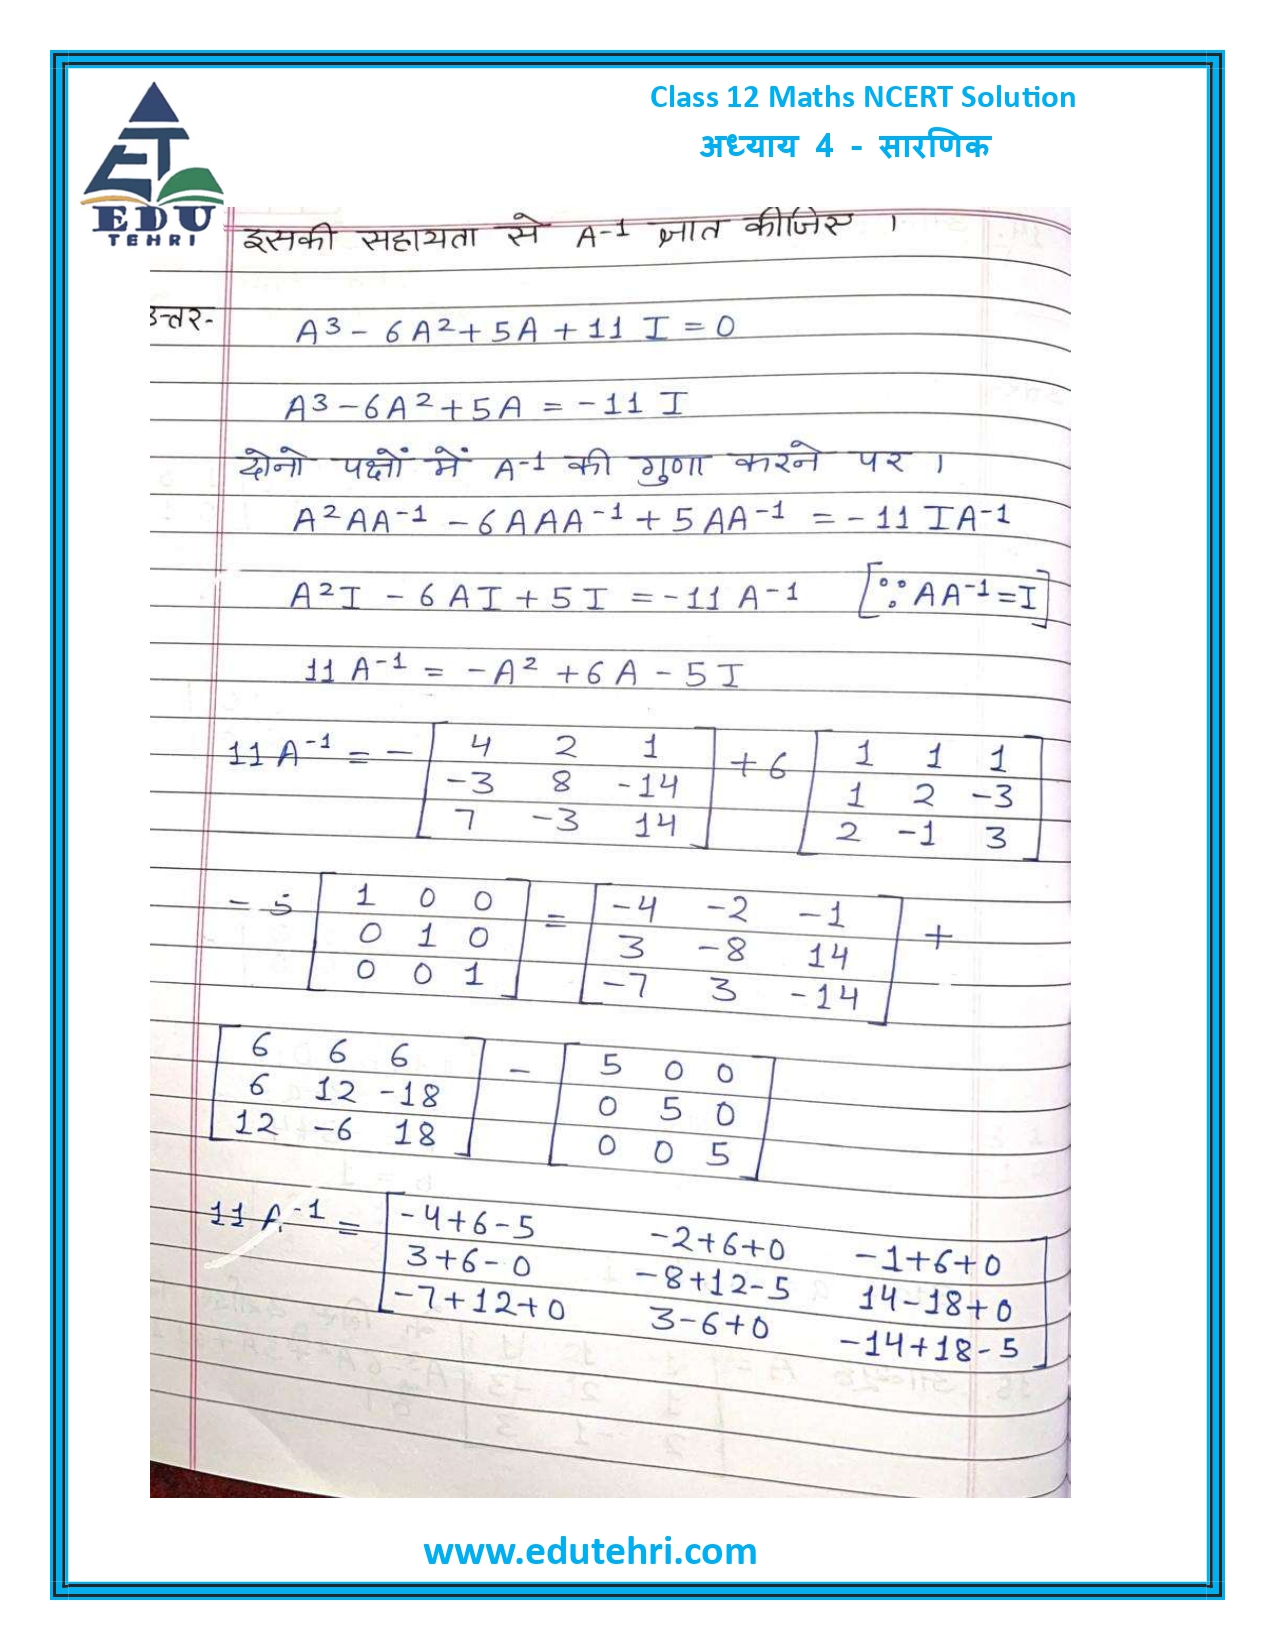 Class 12 Maths NCERT Solution
अध्याय 4 - सारणिक
EDU
TEHRI
इसकी सहायता से A-1 ज्ञात कीजिए ।
उत्तर-
A3 - 6A2 + 5A + 11 I = 0
A3 - 6A2 + 5A = -11 I
दोनो पक्षों में A-1 की गुणा करने पर ।
A2AA-1 - 6AAA-1 + 5AA-1 = -11 IA-1
A2I - 6AI + 5I = -11 A-1 [∵ AA-1 = I]
11 A-1 = -A2 + 6A - 5I
11 A-1 = - [ 4 2 1 ] + 6 [ 1 1 1 ]
-3 8 -14 1 2 -3
7 -3 14 2 -1 3
- 5 [ 1 0 0 ] = [ -4 -2 -1 ] +
0 1 0 3 -8 14
0 0 1 -7 3 -14
[ 6 6 6 ] - [ 5 0 0 ]
6 12 -18 0 5 0
12 -6 18 0 0 5
11 A-1 = [ -4+6-5 -2+6+0 -1+6+0 ]
3+6-0 -8+12-5 14-18+0
-7+12+0 3-6+0 -14+18-5
www.edutehri.com